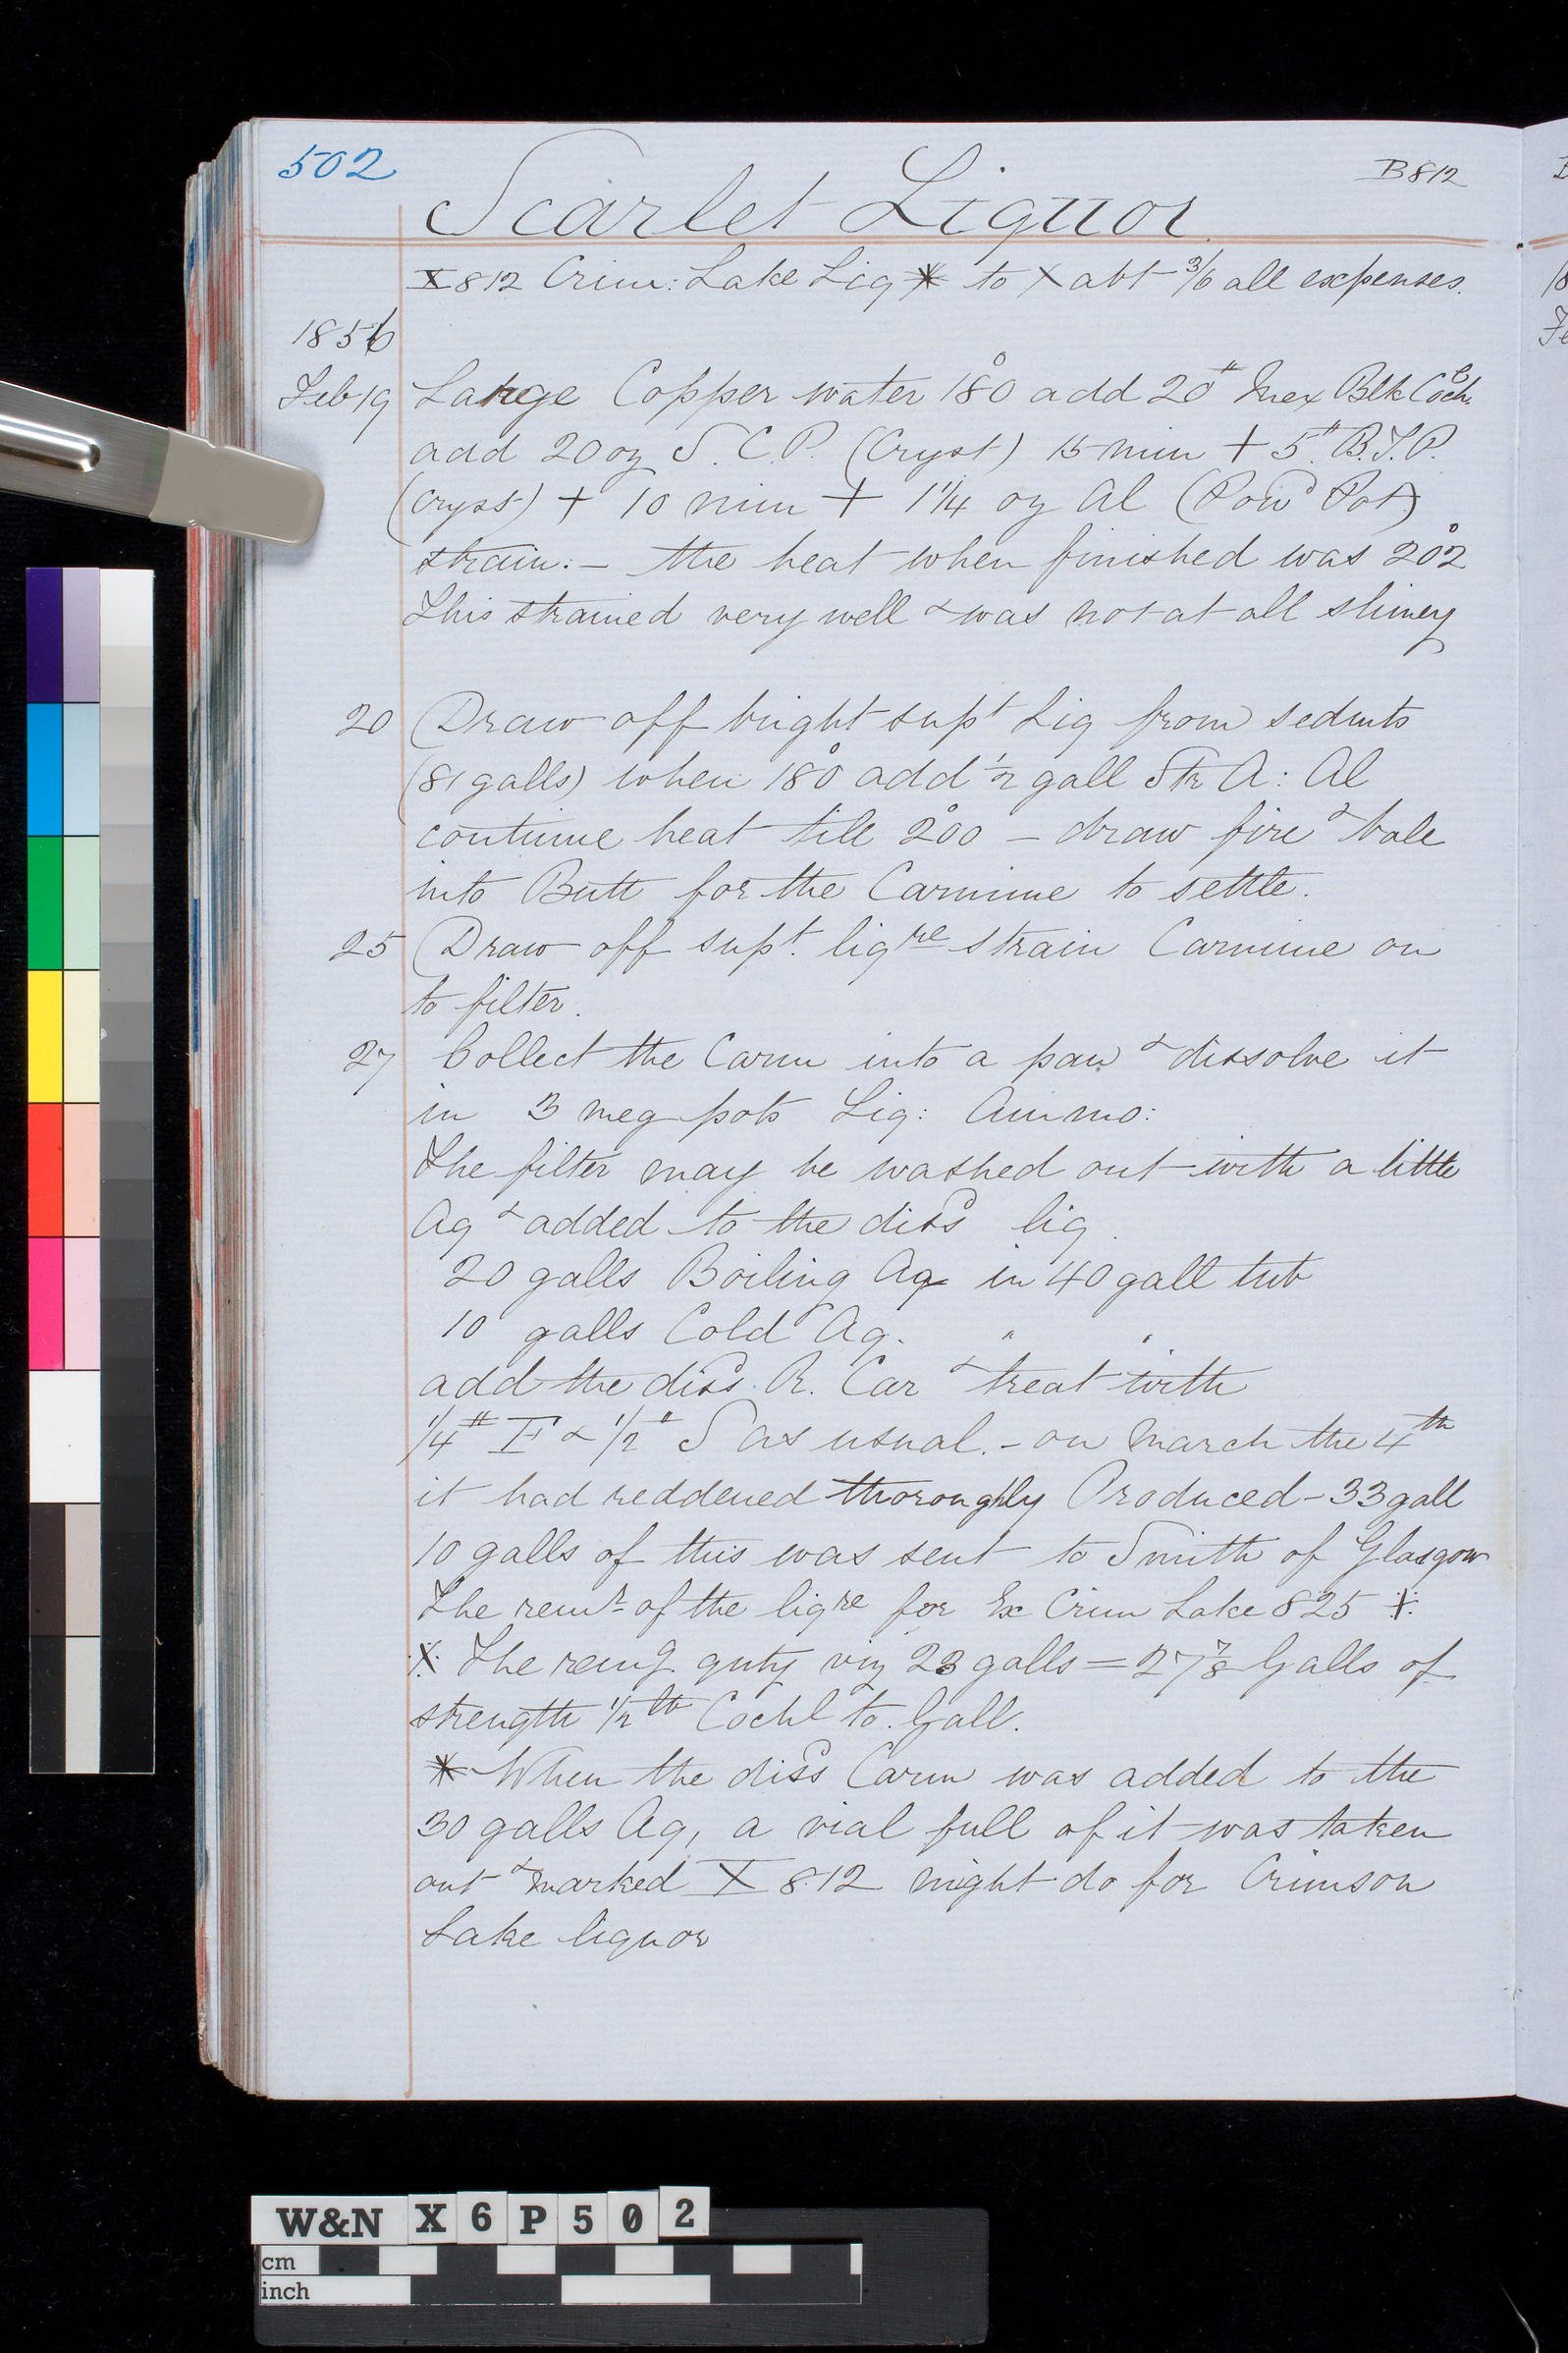 502
B812
Scarlet Liquor
X812 Crim: Lake Liq * to X abt 3/6 all expenses.
1856
Feb 19 Large Copper water 180° add 20# Mex Blk Coch.
add 20 oz S.C.P. (Cryst) 15 min + 5" B.T.P.
(cryst) + 10 min + 1 1/4 oz Al (Powd Pot)
strain: – the heat when finished was 202°
This strained very well & was not at all slimey
20 Draw off bright supt Liq from sedmts
(81 galls) when 180° add 1/2 gall Str A: Al
continue heat till 200° – draw fire & bale
into Butt for the Carmine to settle.
25 Draw off supt. liqre strain Carmine on
to filter.
27 Collect the Carm into a pan & dissolve it
in 3 meg pots Liq: Ammo:
The filter may be washed out with a little
Aq & added to the dissd liq.
20 galls Boiling Aq in 40 gall tub
10 galls Cold Aq. " "
add the dissd. R. Car & treat with
1/4# T & 1/2" S as usual. – on March the 4th
it had reddened thoroughly Produced – 33 gall
10 galls of this was sent to Smith of Glasgow
The remr of the liqre for Ex Crim Lake 825 ⁜
⁜ The remg qnty viz 23 galls = 27 7/8 Galls of
strength 1/2 lb Cochl to Gall.
* When the dissd Carm was added to the
30 galls Aq, a vial full of it was taken
out & marked X 812 might do for Crimson
Lake liquor
W&N X6P502
cm
inch